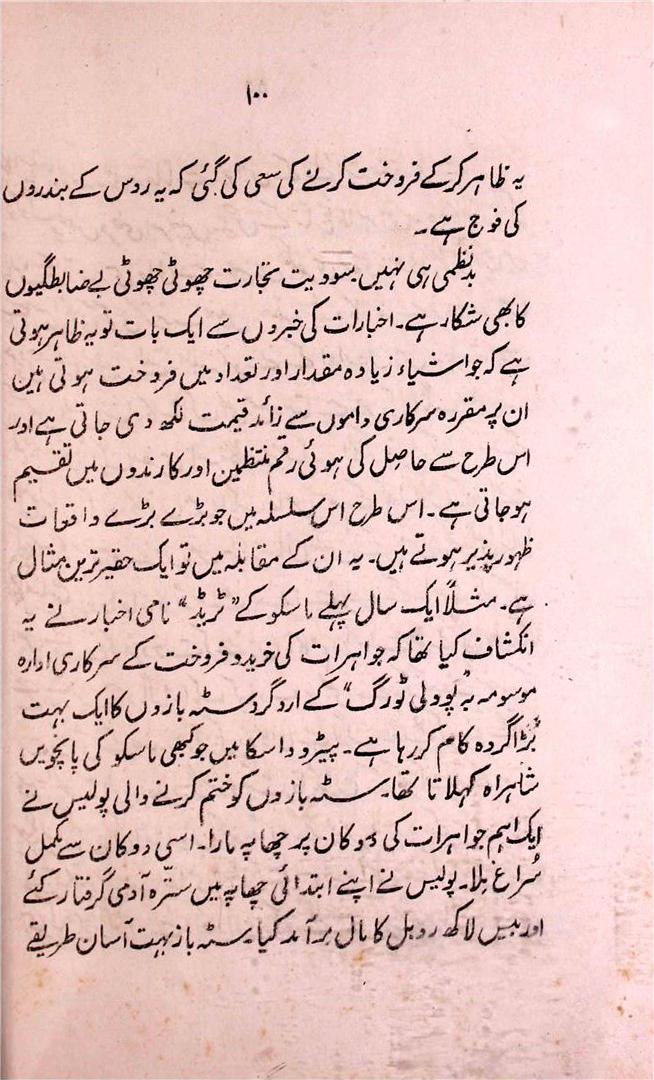 ۱۰۰
یہ ظاہر کر کے فروخت کرنے کی سعی کی گئی کہ یہ روس کے بندروں
کی فوج ہے۔
بدنظمی ہی نہیں سوویت تجارت چھوٹی چھوٹی بے ضابطگیوں
کا بھی شکار ہے۔ اخبارات کی خبروں سے ایک بات تو یہ ظاہر ہوتی
ہے کہ جو اشیاء زیادہ مقدار اور تعداد میں فروخت ہوتی ہیں
ان پر مقررہ سرکاری داموں سے زائد قیمت لکھ دی جاتی ہے اور
اس طرح سے حاصل کی ہوئی رقم منتظمین اور کارندوں میں تقسیم
ہو جاتی ہے۔ اس طرح اس سلسلہ میں جو بڑے بڑے واقعات
ظہور پذیر ہوتے ہیں۔ یہ ان کے مقابلہ میں تو ایک حقیر ترین مثال
ہے۔ مثلاً ایک سال پہلے ماسکو کے "ٹریڈ" نامی اخبار نے یہ
انکشاف کیا تھا کہ جواہرات کی خرید و فروخت کے سرکاری ادارہ
موسومہ بہ "یوولی ٹورگ" کے اردگرد سٹہ بازوں کا ایک بہت
بڑا گروہ کام کر رہا ہے۔ پیٹرووسکا میں جو کبھی ماسکو کی پانچویں
شاہراہ کہلاتا تھا۔ سٹہ بازوں کو ختم کرنے والی پولیس نے
ایک اہم جواہرات کی دوکان پر چھاپہ مارا۔ اسی دوکان سے مکمل
سُراغ ملا۔ پولیس نے اپنے ابتدائی چھاپہ میں سترہ آدمی گرفتار کئے
اور بیس لاکھ روبل کا مال برآمد کیا۔ سٹہ باز بہت آسان طریقے